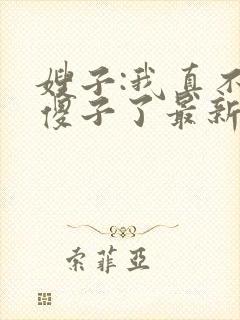 嫂子:我真不
傻子了最新
索菲亞